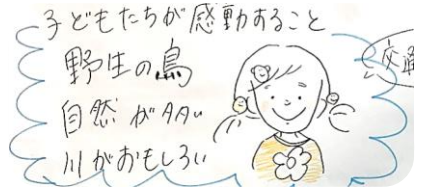 子どもたちが感動すること
野生の鳥
自然が多い
川がおもしろい
交通